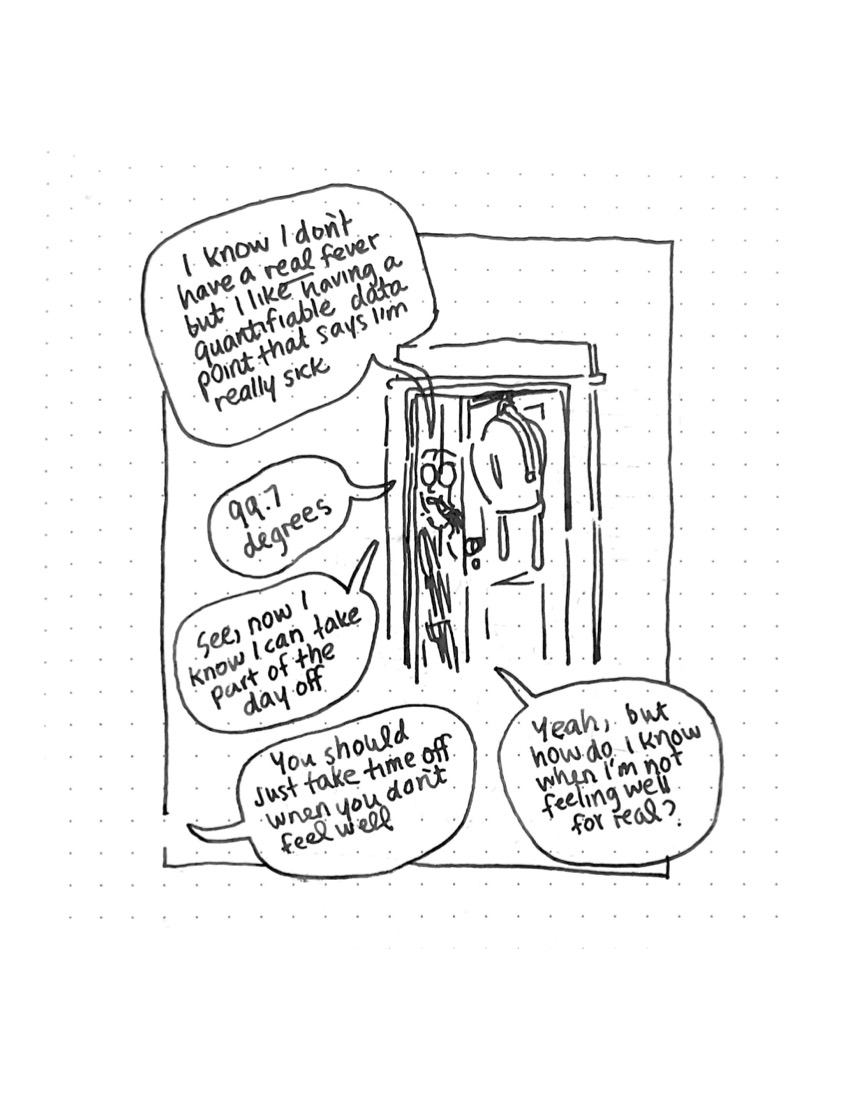 I know I don't
have a real fever
but I like having a
quantifiable data
point that says I'm
really sick
99.7
degrees
See, now I
know I can take
part of the
day off
You should
just take time off
when you don't
feel well
Yeah, but
how do I know
when I'm not
feeling well
for real?